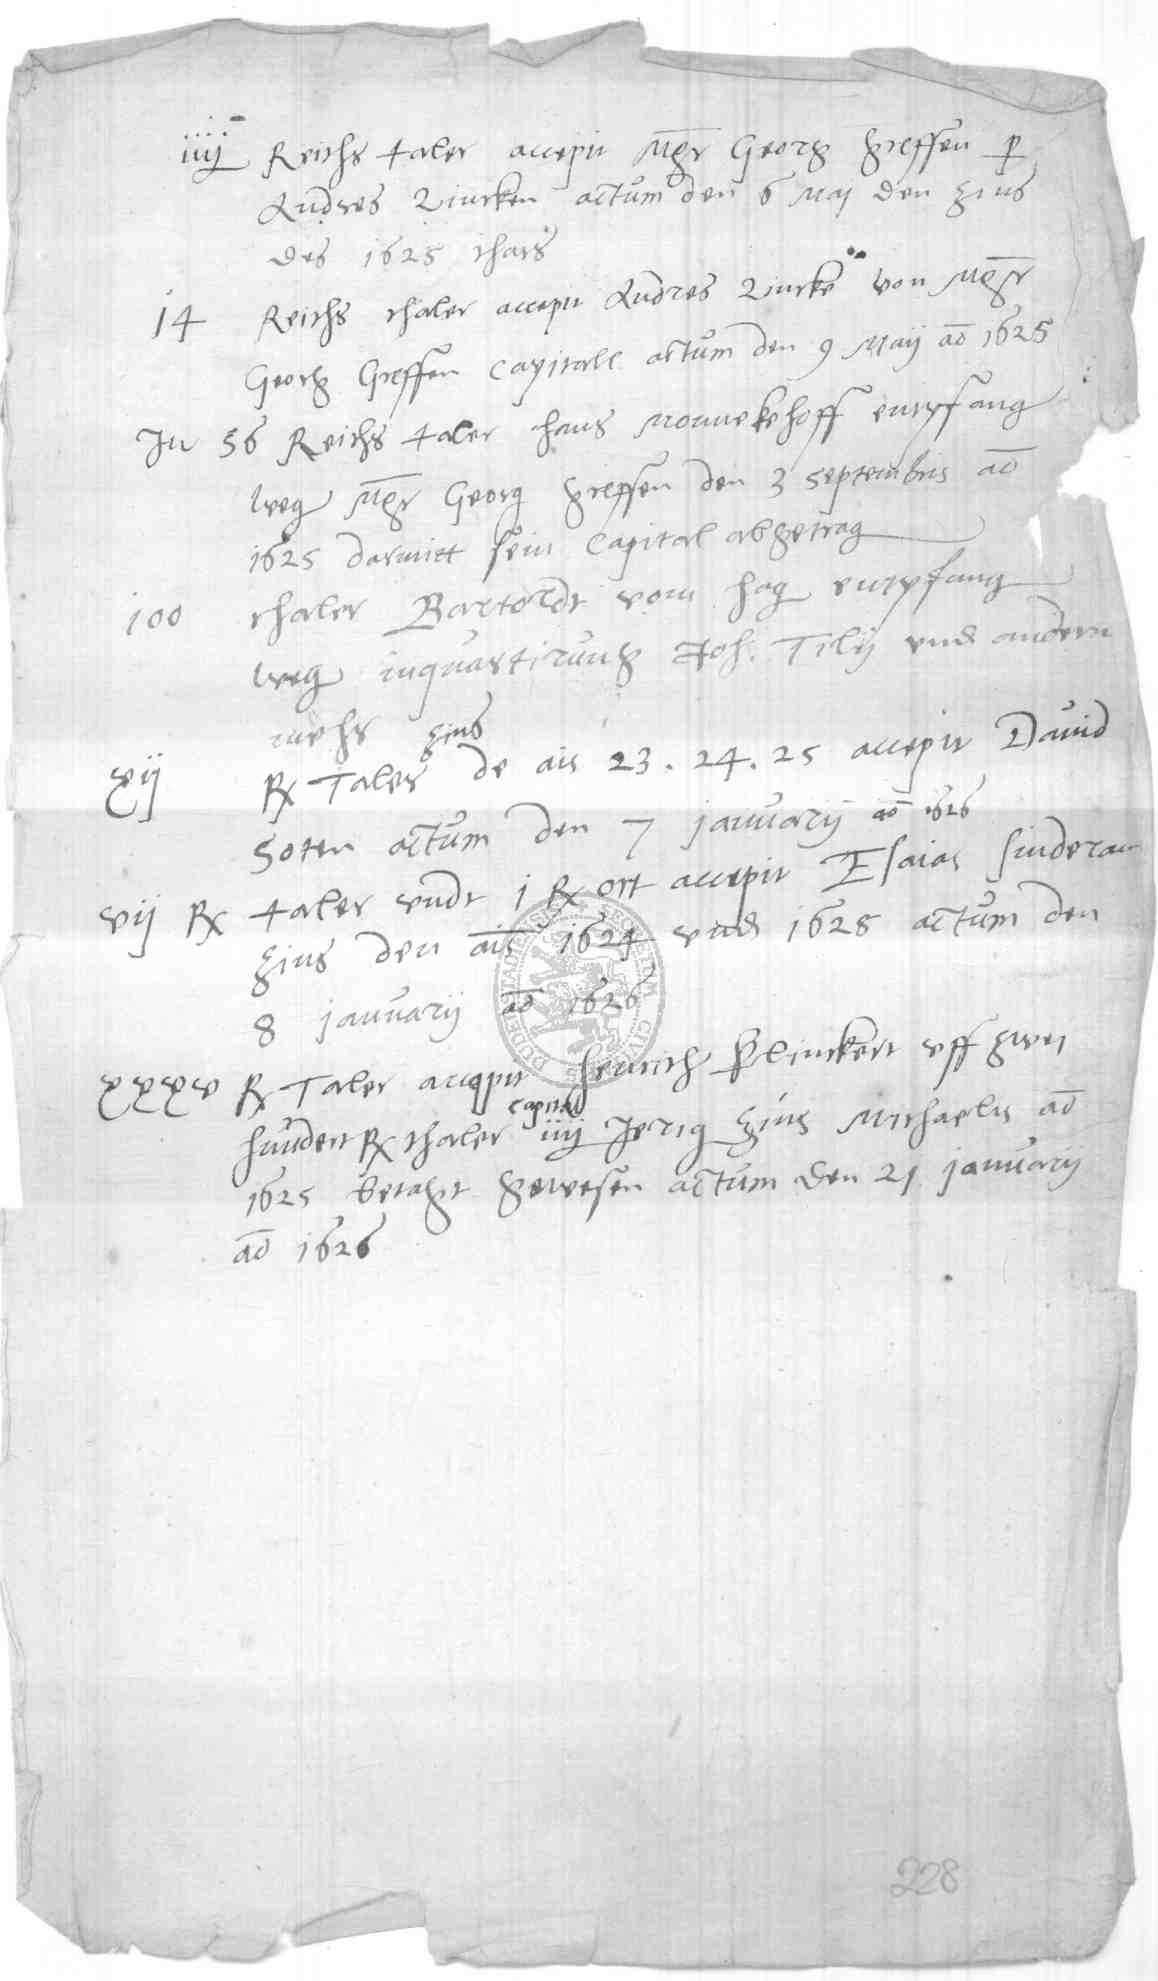 iiij Reichs taler accepit Mgr Georg Greffen p
Andres Lincken actum den 6 Maj den zins
des 1625 thars
14 Reichs thaler accepit Andres Lincke von Mgr
Georg Greffen Capitall actum den 9 Maij ao 1625
In 56 Reichs taler hans Monnekehoff entpfang
weg Mgr Georg Greffen den 3 Septembris ao
1625 darmitt sein Capital abgetrag
100 thaler Bartoldt vom hag entpfang
weg inquartirung Joh. Tilij und andern
zins
xij Rx Taler de ais 23. 24. 25 accepit David
Soten actum den 7 januarij ao 1626
vij Rx taler undt j Rx ort accepit Esaias Sinderam
zins den ais 1624 und 1625 actum den
8 januarij ao 1626
xxxv Rx Taler accepit henrich Klinckert uff zwei
Capital
hundert Rx thaler iiij Jerig zins Michaelis ao
1625 betagt gewesen actum den 21 januarij
ao 1626
228